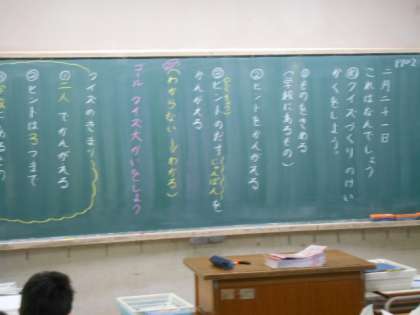 二月二十一日
これはなんでしょう
クイズづくりのけい
かくをしよう。
①ものをきめる
(学校にあるもの)
②ヒントをかんがえる
③ヒントのだすじゅんばんを
かんがえる
(わからない→わかる)
ゴール クイズ大かいをしよう
クイズのきまり
①二人でかんがえる
②ヒントは3つまで